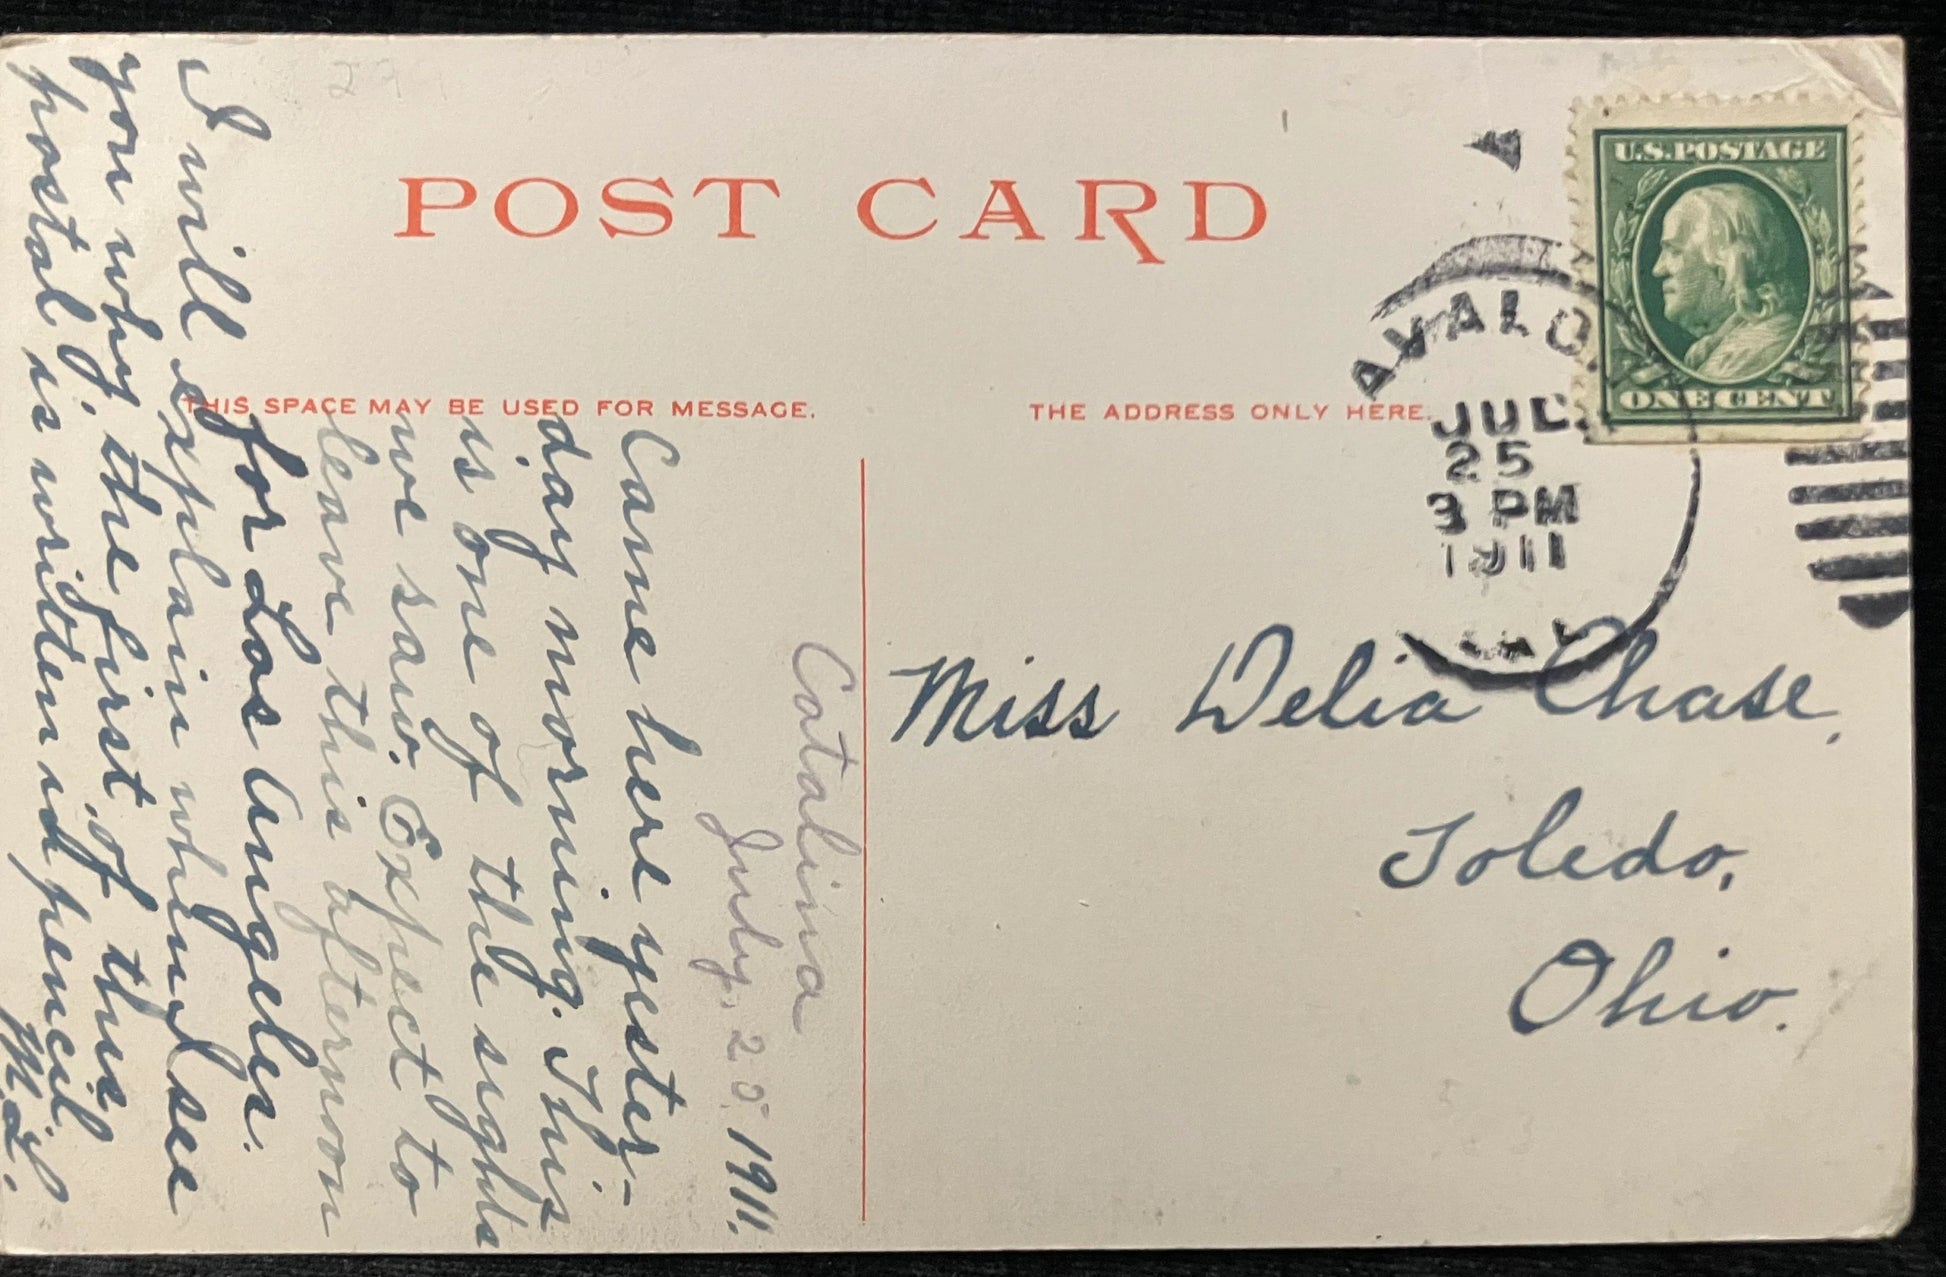 POST CARD
THIS SPACE MAY BE USED FOR MESSAGE.
THE ADDRESS ONLY HERE.
U.S. POSTAGE
ONE CENT
AVALO
JUL
25
3 PM
1911
CAL
Catalina
July, 25, 1911.
Came here yester-
day morning. This
is one of the sights
we saw. Expect to
leave this afternoon
for Los Angeles.
I will explain when I see
you why, the first of this
postal is written in pencil.
M.L.
Miss Delia Chase,
Toledo,
Ohio.